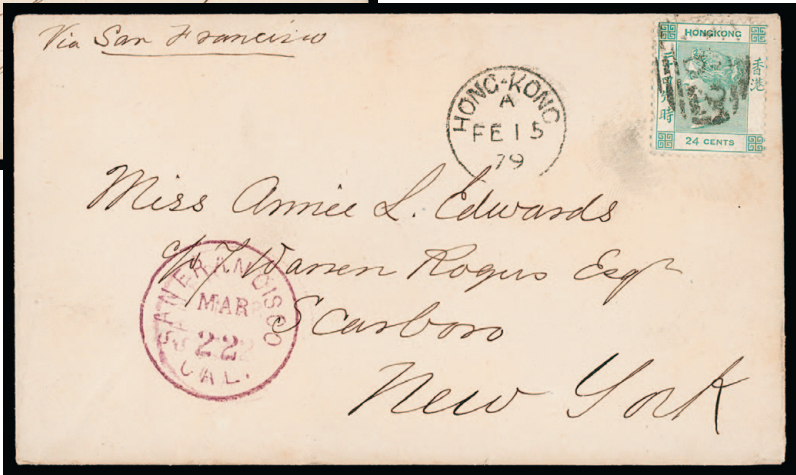 Via San Francisco
HONGKONG
香港
24 CENTS
HONG-KONG
A
FE 15
79
Miss Annie L. Edwards
c/o J Warren Rogers Esqr
Scarboro
New York
SAN FRANCISCO
MAR
22
CAL.